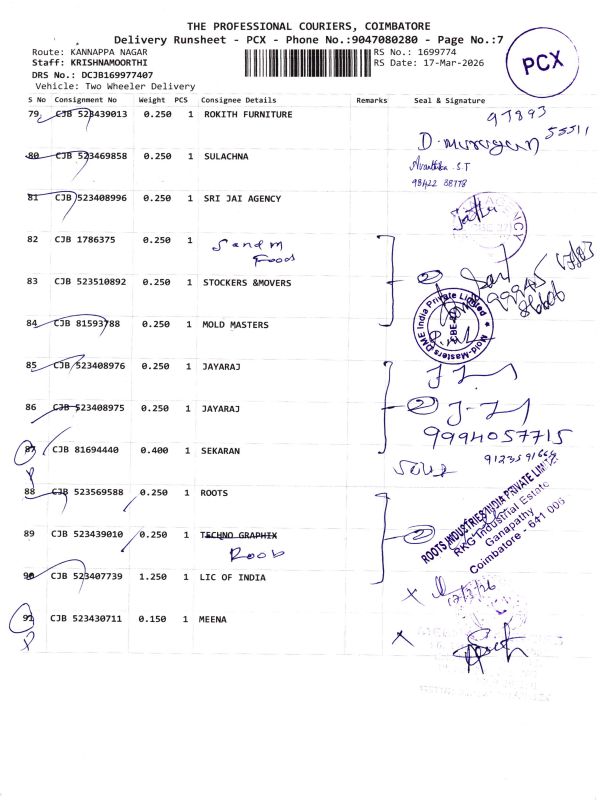 THE PROFESSIONAL COURIERS, COIMBATORE
Delivery Runsheet - PCX - Phone No.:9047080280 - Page No.:7
Route: KANNAPPA NAGAR RS No.: 1699774
Staff: KRISHNAMOORTHI RS Date: 17-Mar-2026
DRS No.: DCJB169977407
Vehicle: Two Wheeler Delivery
PCX
S No Consignment No Weight PCS Consignee Details Remarks Seal & Signature
79 CJB 523439013 0.250 1 ROKITH FURNITURE
80 CJB 523469858 0.250 1 SULACHNA
Avanthika S.T
98422 88778
81 CJB 523408996 0.250 1 SRI JAI AGENCY
82 CJB 1786375 0.250 1 Sandm
Foods
83 CJB 523510892 0.250 1 STOCKERS &MOVERS
2
84 CJB 81593788 0.250 1 MOLD MASTERS
Mold-Masters DME India Private Limited
85 CJB 523408976 0.250 1 JAYARAJ
86 CJB 523408975 0.250 1 JAYARAJ
2
9994057715
87 CJB 81694440 0.400 1 SEKARAN
P
88 CJB 523569588 0.250 1 ROOTS
ROOTS INDUSTRIES INDIA PRIVATE LIMITED
RKG Industrial Estate
Ganapathy
Coimbatore - 641 006
89 CJB 523439010 0.250 1 TECHNO GRAPHIX
2
90 CJB 523407739 1.250 1 LIC OF INDIA
17/3/26
91 CJB 523430711 0.150 1 MEENA
P